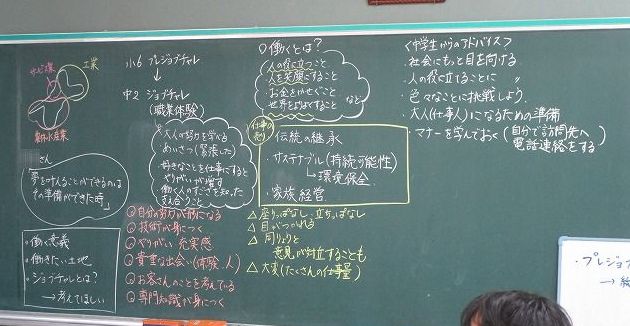 サービス業
工業
農林水産業
さん
「夢を叶えることができるのは
その準備ができた時」
・働く意義
・働きたい土地
・ジョブチャレとは?
→考えてほしい
小6 プレジョブチャレ
↓
中2 ジョブチャレ
(職業体験)
大人の努力を学べる
あいさつ(緊張した)
好きなことを仕事にすると
やりがいが増す
働く人のすごさを知った
支え合うこと
◎自分の努力が形になる
◎技術が身につく
◎やりがい、充実感
◎貴重な出会い(体験、人)
◎お客さんのことを考えている
◎専門知識が身につく
○働くとは?
人の役に立つこと
人を笑顔にすること
お金をかせぐこと
世界をよりよくすること
など
仕事の
・伝統の継承
・サステナブル(持続可能性)
↳環境保全
・家族経営
△座りっぱなし、立ちっぱなし
△目がつかれる
△同りょうと
意見が対立することも
△大変(たくさんの仕事量)
<中学生からのアドバイス>
・社会にもっと目を向ける
・人の役に立てることに 〃
・色々なことに挑戦しよう
・大人(仕事人)になるための準備
・マナーを学んでおく(自分で訪問先へ
電話連絡をする)
・プレジョブ
→